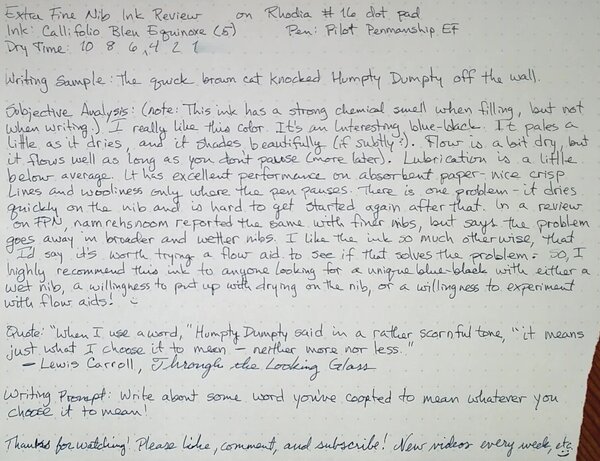 Extra Fine Nib Ink Review on Rhodia #16 dot pad
Ink: Callifolio Bleu Equinoxe (5) Pen: Pilot Penmanship EF
Dry Time: 10 8 6 4 2 1
Writing Sample: The quick brown cat knocked Humpty Dumpty off the wall.
Subjective Analysis: (note: This ink has a strong chemical smell when filling, but not
when writing.) I really like this color. It's an interesting blue-black. It pales a
little as it dries, and it shades beautifully (if subtly). Flow is a bit dry, but
it flows well as long as you don't pause (more later). Lubrication is a little
below average. It has excellent performance on absorbent paper - nice crisp
lines and wooliness only where the pen pauses. There is one problem - it dries
quickly on the nib and is hard to get started again after that. In a review
on FPN, namrehsnoom reported the same with finer nibs, but says the problem
goes away in broader and wetter nibs. I like the ink so much otherwise, that
I'd say it's worth trying a flow aid to see if that solves the problem. So, I
highly recommend this ink to anyone looking for a unique blue-black with either a
wet nib, a willingness to put up with drying on the nib, or a willingness to experiment
with flow aids!
Quote: "When I use a word," Humpty Dumpty said in a rather scornful tone, "it means
just what I choose it to mean - neither more nor less."
- Lewis Carroll, Through the Looking Glass
Writing Prompt: Write about some word you've coopted to mean whatever you
choose it to mean!
Thanks for watching! Please like, comment, and subscribe! New videos every week, etc.